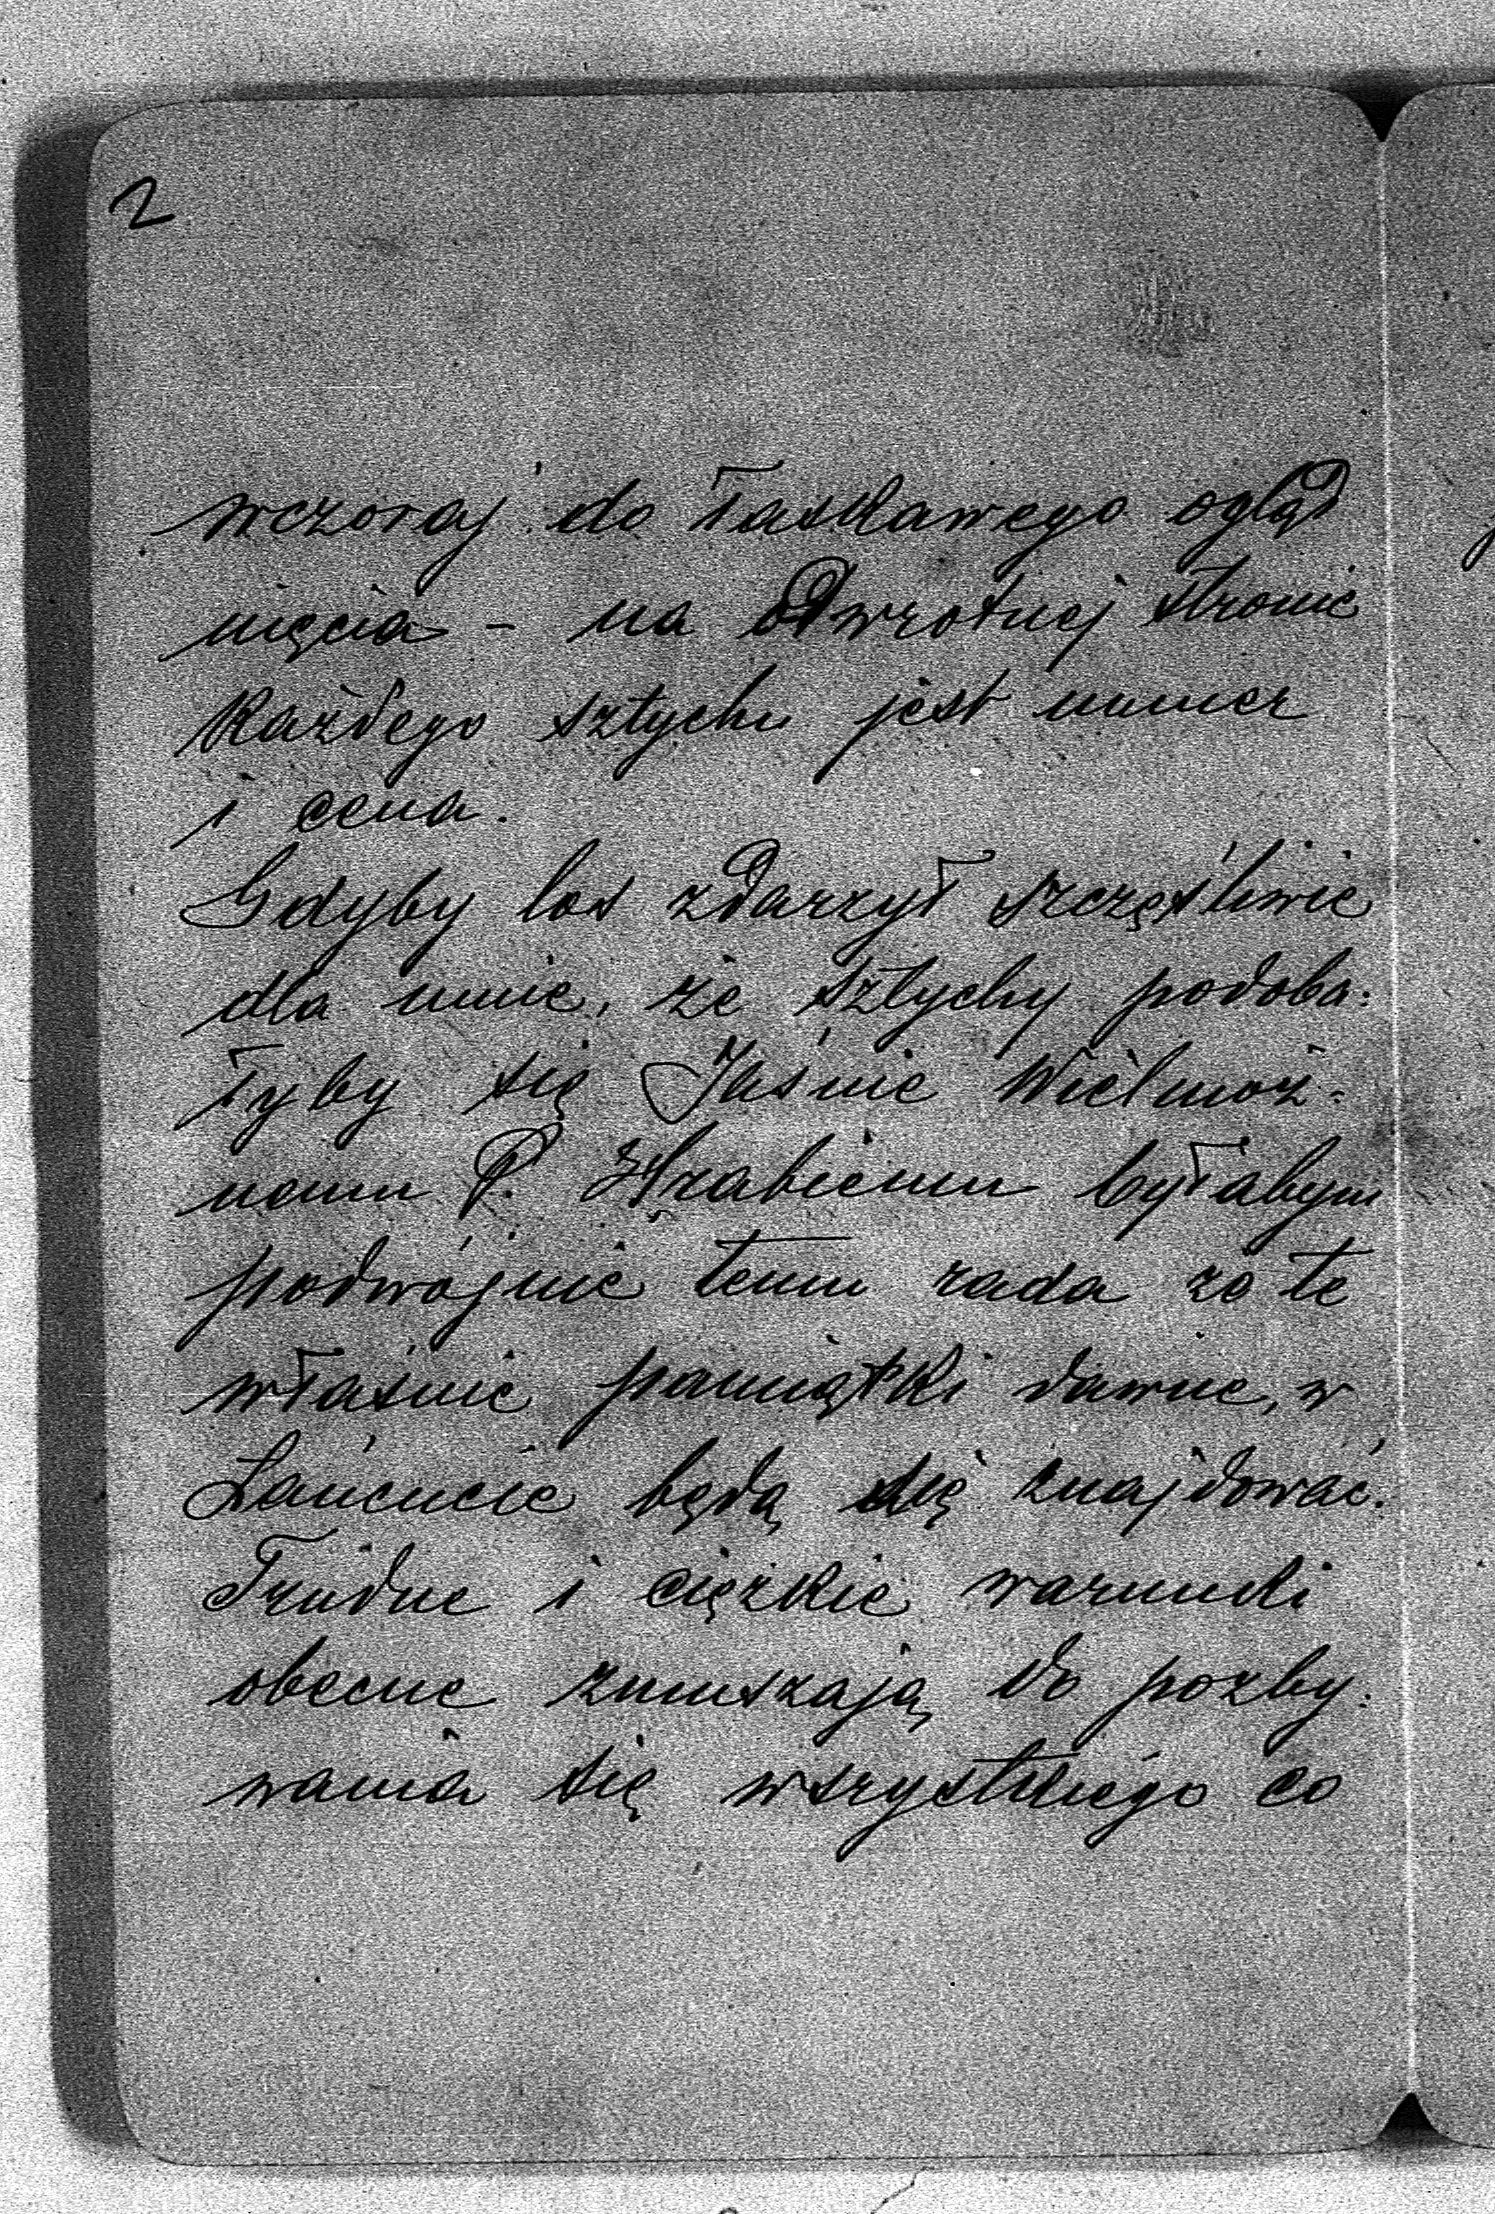 2
wczoraj do łaskawego ogląd
nięcia - na odwrotnej stronie
każdego sztychu jest numer
i cena.
Gdyby los zdarzył szczęśliwie
dla mnie, że sztychy podoba:
łyby się Jaśnie Wielmoż-
nemu P. Hrabiemu byłabym
podwójnie temu rada że te
właśnie pamiątki dawne, w
Łańcucie będą się znajdować.
Trudne i ciężkie warunki
obecne zmuszają do pozby:
wania się wszystkiego co